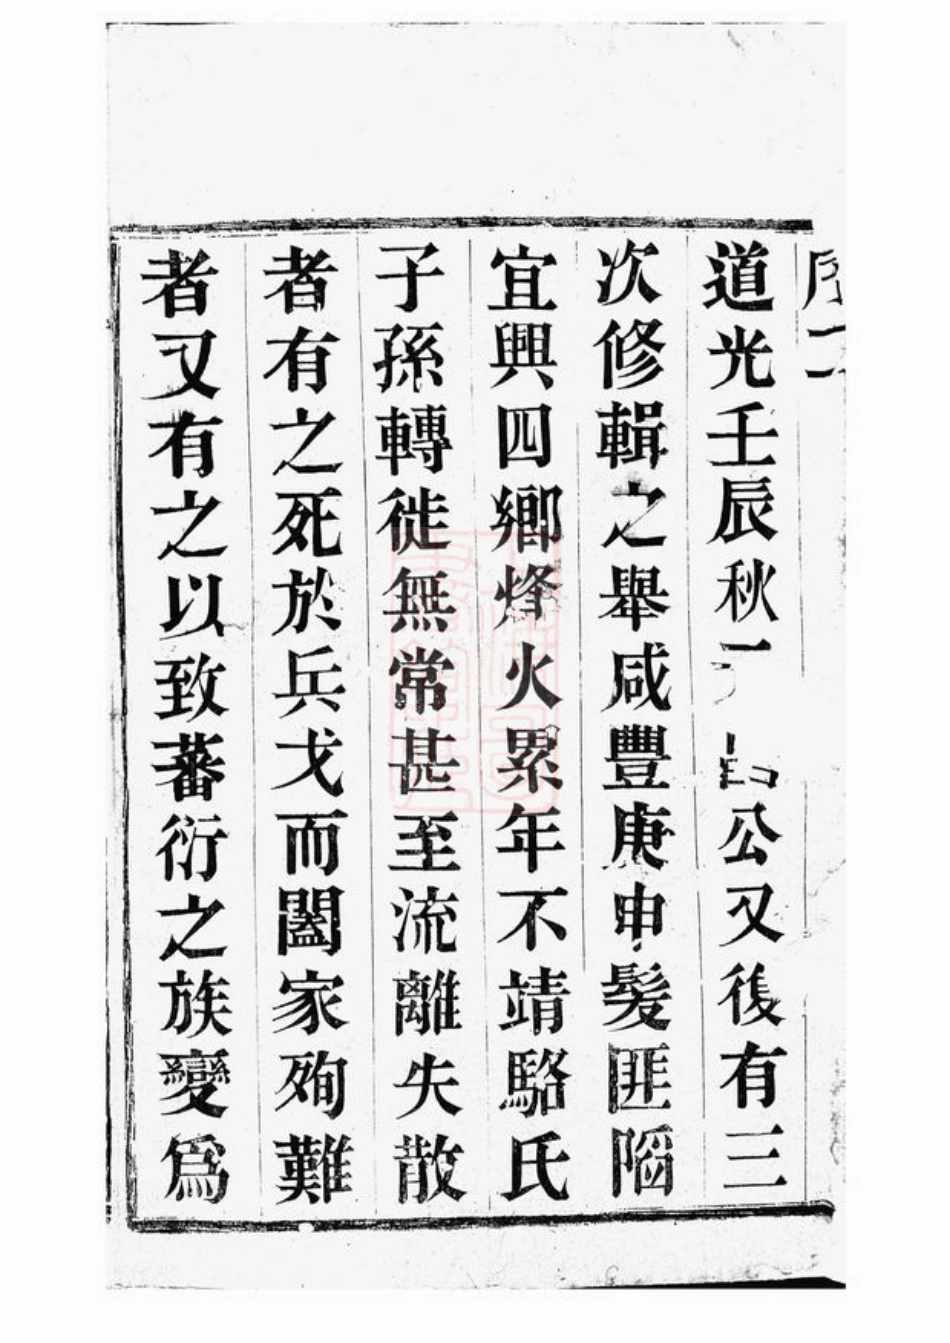 序二
道光壬辰秋公又後有三
次修輯之舉咸豐庚申髮匪陷
宜興四鄉烽火累年不靖駱氏
子孫轉徙無常甚至流離失散
者有之死於兵戈而闔家殉難
者又有之以致蕃衍之族變爲